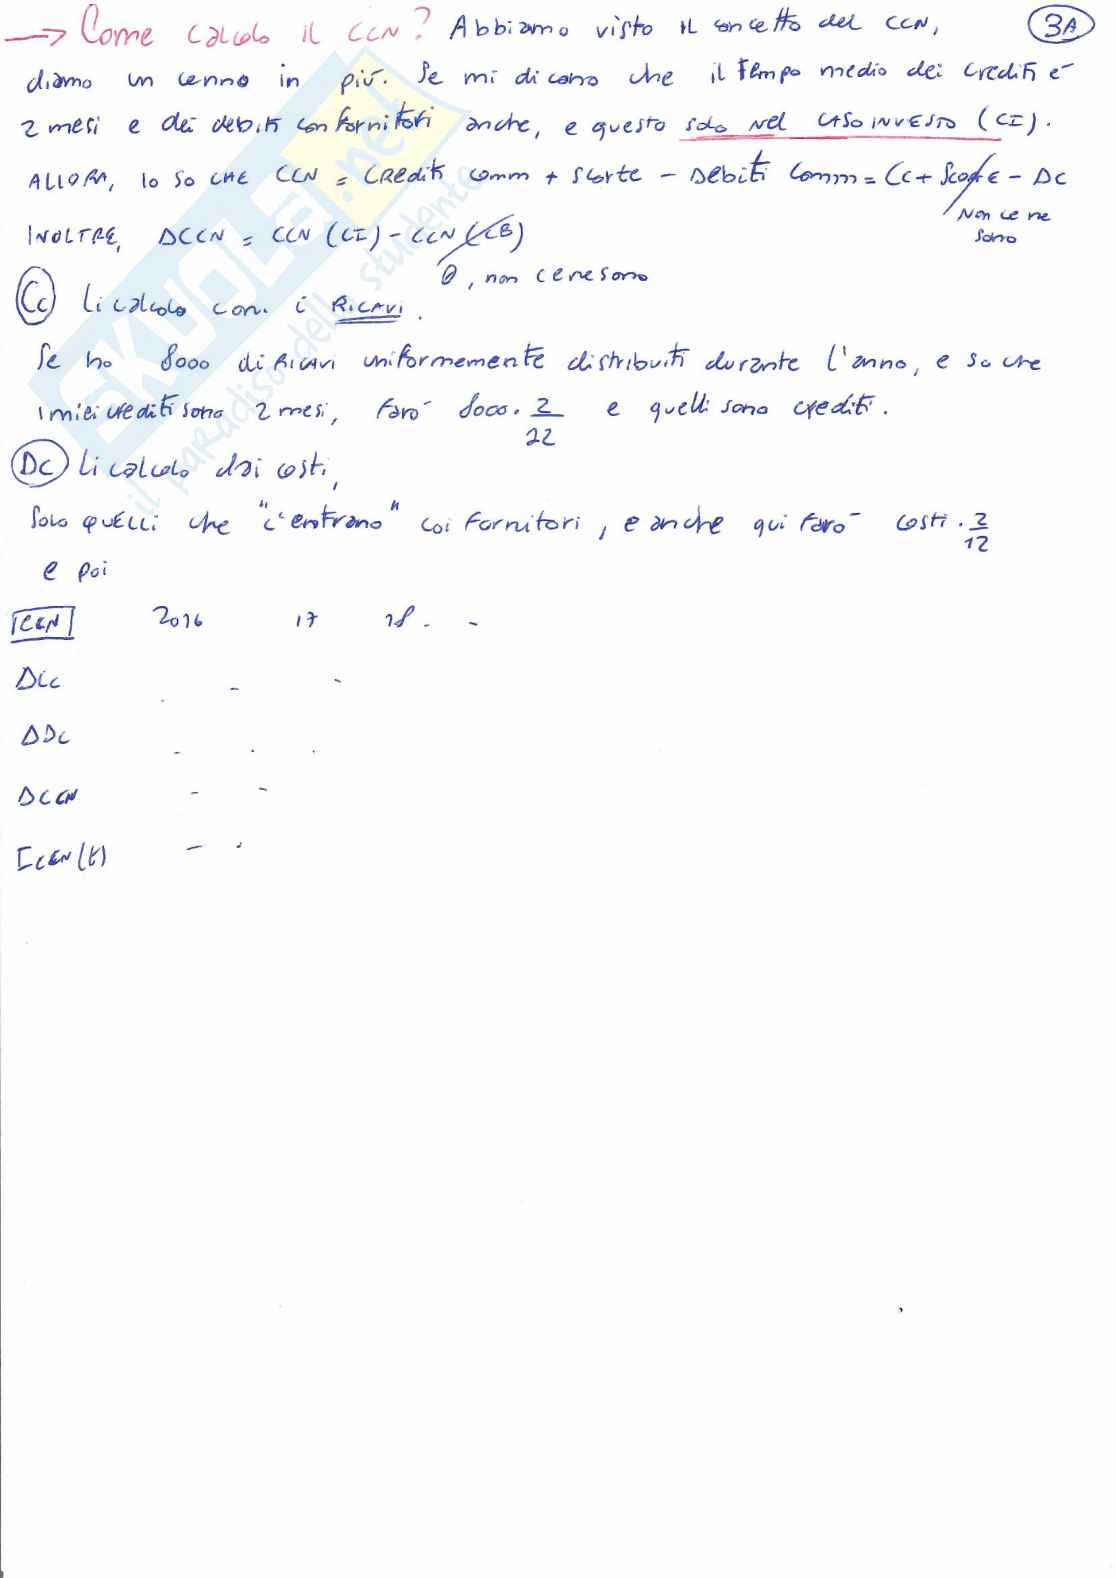 → Come calcolo il CCN? Abbiamo visto il concetto del CCN, 3A
diamo un cenno in più. Se mi dicono che il tempo medio dei crediti è
2 mesi e dei debiti con fornitori anche, e questo solo nel CASO INVESTO (CI).
ALLORA, lo so CHE CCN = Crediti comm + scorte - Debiti comm = Cc + Scorte - Dc
Non ce ne
sono
INOLTRE, DCCN = CCN (CI) - CCN (CB)
0, non ce ne sono
Cc li calcolo con i RICAVI.
Se ho 8000 di Ricavi uniformemente distribuiti durante l'anno, e so che
i miei crediti sono 2 mesi, farò 8000 . 2/12 e quelli sono crediti.
Dc li calcolo dai costi,
solo quelli che "c'entrano" coi fornitori, e anche qui farò costi . 2/12
e poi
2016 17 18 . -
ΔCc
ΔDc
DCCN
il paradiso dello studente
SKUOLA.net